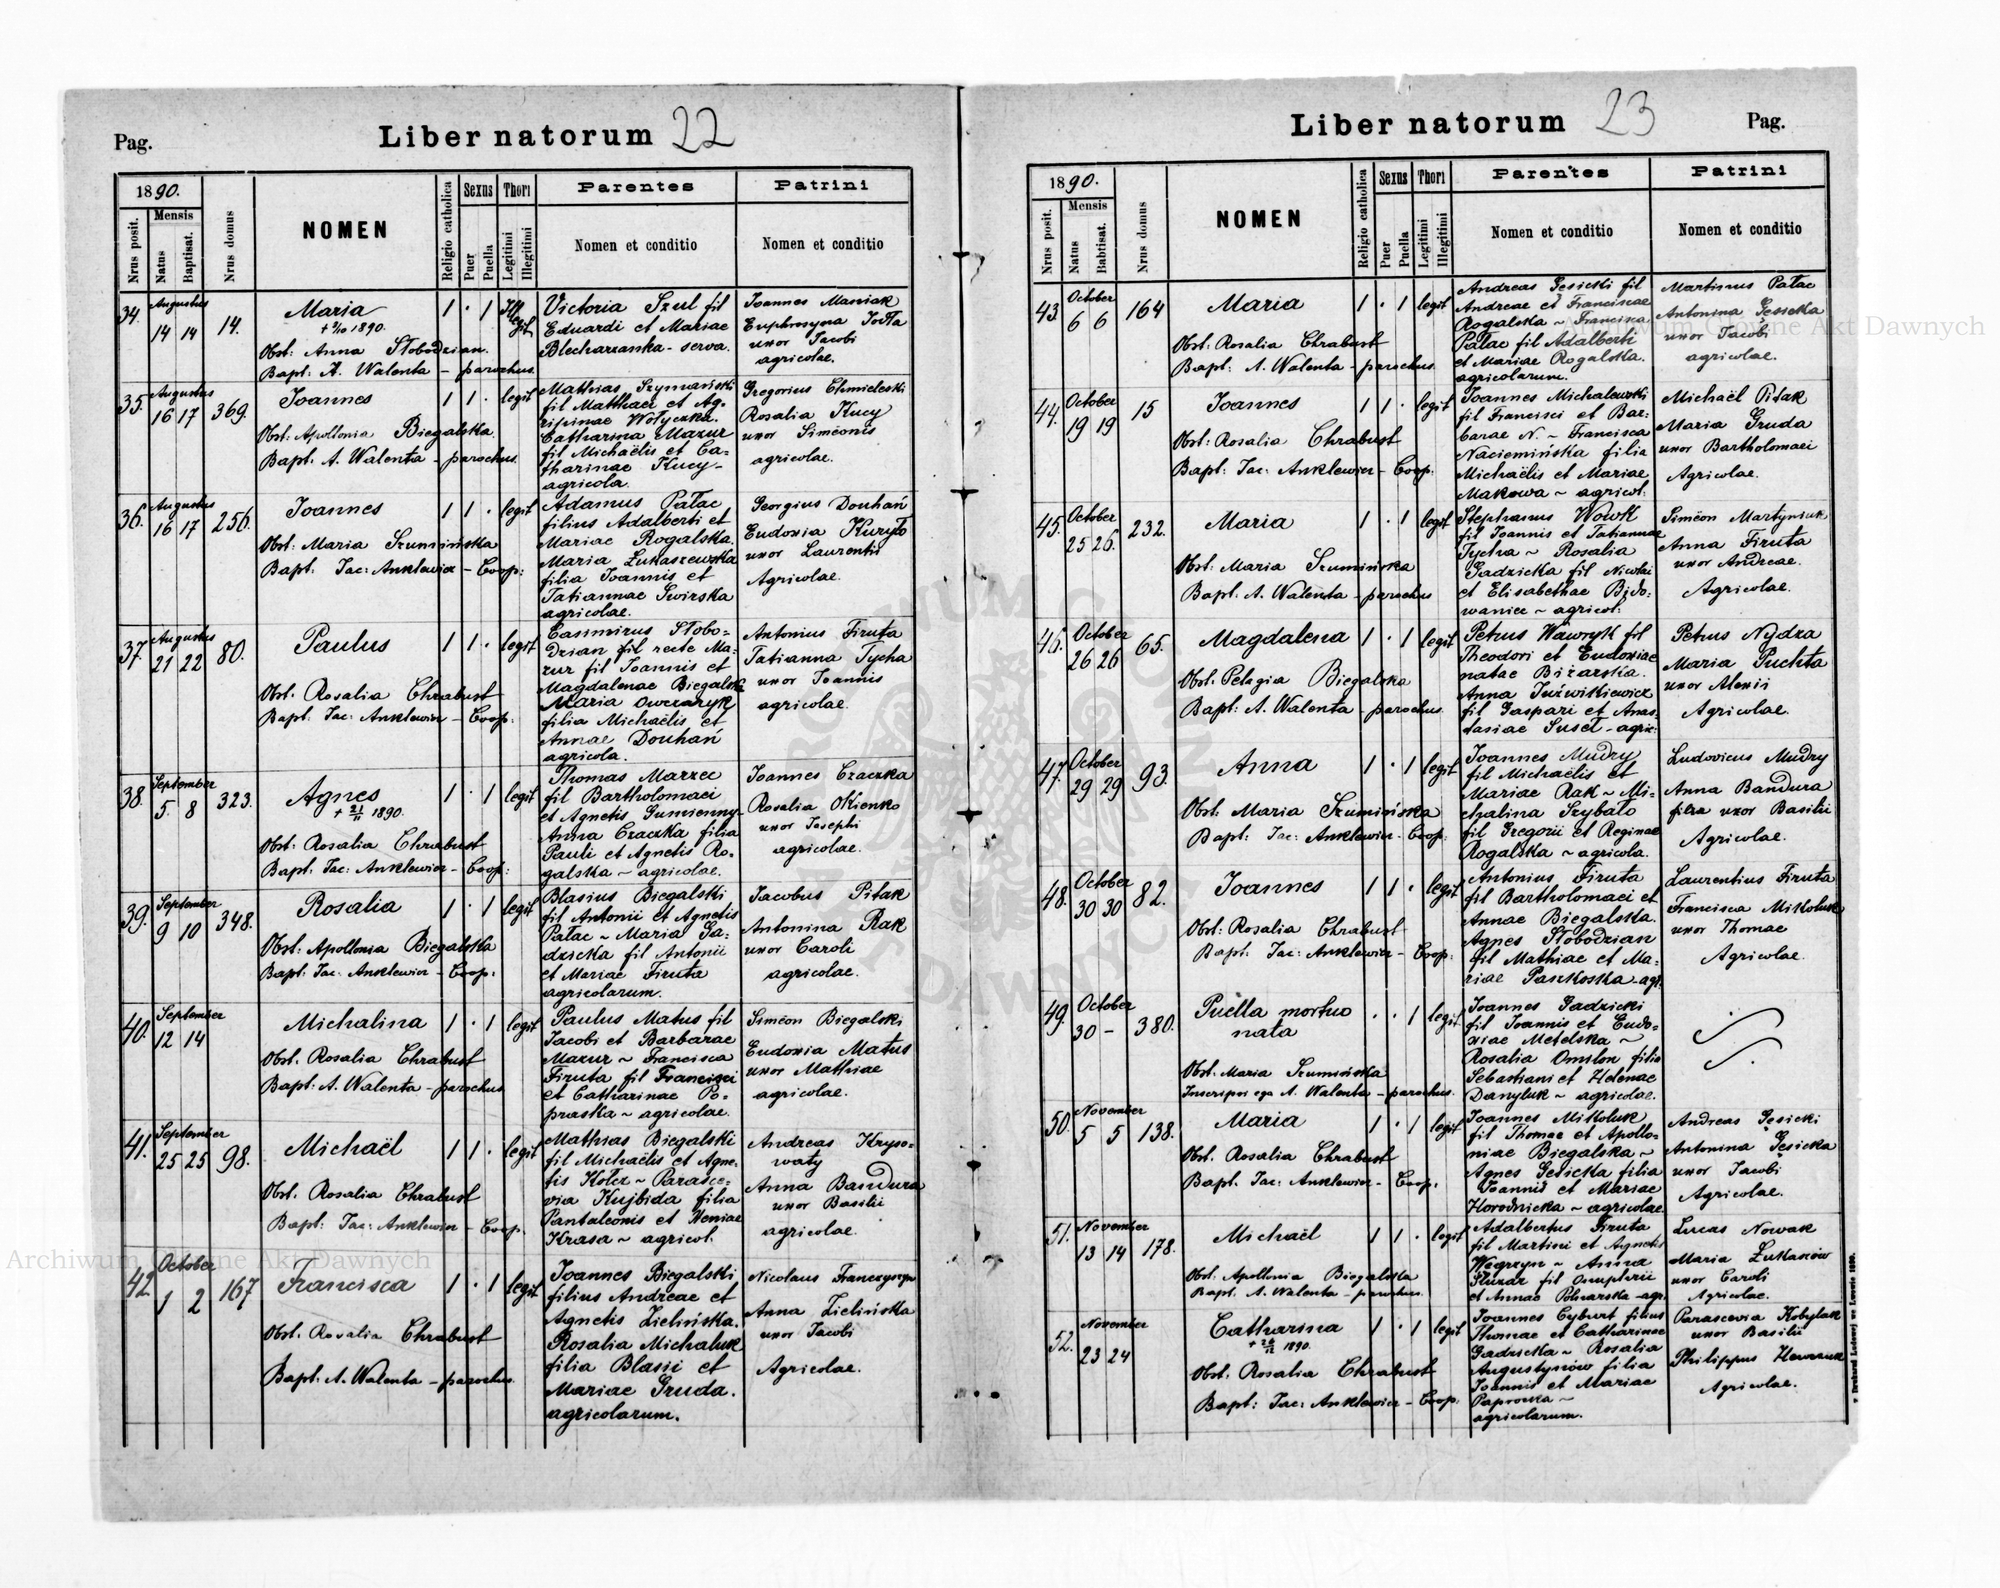 Pag.
Liber natorum 22
1890.
Nrus posit.
Mensis
Natus
Baptisat.
Nrus domus
NOMEN
Religio catholica
Sexus
Puer
Puella
Thori
Legitimi
Illegitimi
Parentes
Nomen et conditio
Patrini
Nomen et conditio
34. Augustus 14 14 14.
Maria
1890.
Obst: Anna Słobodzian.
Bapt: A. Walenta - parochus.
1 . 1 Illegit.
Victoria Szul fil
Eduardi et Mariae
Blecharzanka - serva.
Joannes Maniak
Euphrosyna
uxor Jacobi
agricolae.
35. Augustus 16 17 369.
Joannes
Obst: Apollonia Biegalska.
Bapt. A. Walenta - parochus.
1 1 . legit
Mathias Szymański
fil Matthaei et Ag-
ripinae Wołyczka.
Catharina Mazur
fil Michaëlis et Ca-
tharinae Kucy-
agricola.
Gregorius Chmielecki
Rosalia Kucy
uxor Simeonis
agricolae.
36. Augustus 16 17 256.
Joannes
Obst: Maria Szumińska
Bapt: Jac: Anklewicz - Coop:
1 1 . legit
Adamus Pałac
filius Adalberti et
Mariae Rogalska.
Maria Łukaszewska
filia Joannis et
Tatiannae Swirska
agricolae.
Georgius Douhań
Eudoxia Kuryło
uxor Laurentii
Agricolae.
37. Augustus 21 22 80.
Paulus
Obst. Rosalia Chrabust
Bapt: Jac: Anklewicz - Coop:
1 1 . legit
Casimirus Słobo-
dzian fil recte Ma-
zur fil Joannis et
Magdalenae Biegalska
Maria Owczaryk
filia Michaëlis et
Annae Douhań
agricola.
Antonius Firuta
Tatianna Tycha
uxor Joannis
agricolae.
38. September 5. 8 323.
Agnes
+ 21/11 1890.
Obst: Rosalia Chrabust
Bapt: Jac: Anklewicz - Coop:
1 . 1 legit
Thomas Marzec
fil Bartholomaei
et Agnetis Gumienny-
Anna Czaczka filia
Pauli et Agnetis Ro-
galska ~ agricolae.
Joannes Czaczka
Rosalia Okienko
uxor Josephi
agricolae.
39. September 9 10 348.
Rosalia
Obst: Apollonia Biegalska
Bapt: Jac: Anklewicz - Coop:
1 . 1 legit
Blasius Biegalski
fil Antonii et Agnetis
Pałac ~ Maria Ga-
dzicka fil Antonii
et Mariae Firuta
agricolarum.
Jacobus Pitak
Antonina Rak
uxor Caroli
agricolae.
40. September 12 14
Michalina
Obst. Rosalia Chrabust
Bapt: A. Walenta - parochus
1 . 1 legit
Paulus Matus fil
Jacobi et Barbarae
Mazur ~ Francisca
Firuta fil Francisci
et Catharinae Po-
praska ~ agricolae.
Simeon Biegalski
Eudoxia Matus
uxor Mathiae
agricolae.
41. September 25 25 98.
Michaël
Obst. Rosalia Chrabust
Bapt: Jac: Anklewicz - Coop.
1 1 . legit
Mathias Biegalski
fil Michaëlis et Agne-
tis Kotcz ~ Parasce-
via Kujbida filia
Pantaleonis et Xeniae
Krasa ~ agricol.
Andreas Kryso-
waty
Anna Bandura
uxor Basilii
agricolae.
42 October 1 2 167
Francisca
Obst. Rosalia Chrabust
Bapt: A. Walenta - parochus.
1 . 1 legit
Joannes Biegalski
filius Andreae et
Agnetis Zielińska.
Rosalia Michaluk
filia Blasii et
Mariae Gruda.
agricolarum.
Nicolaus Franczyszyn
Anna Zielińska
uxor Jacobi
Agricolae.
Liber natorum 23
Pag.
1890.
Nrus posit.
Mensis
Natus
Babtisat.
Nrus domus
NOMEN
Religio catholica
Sexus
Puer
Puella
Thori
Legitimi
Illegitimi
Parentes
Nomen et conditio
Patrini
Nomen et conditio
43. October 6 6 164
Maria
Obst: Rosalia Chrabust
Bapt: A. Walenta - parochus.
1 . 1 legit
Andreas Gesicki fil
Andreae et Franciscae
Rogalska ~ Francisca
Pałac fil Adalberti
et Mariae Rogalska.
agricolarum.
Martinus Pałac
Antonina Gęsicka
uxor Jacobi
agricolae.
44. October 19 19 15
Joannes
Obst: Rosalia Chrabust
Bapt: Jac: Anklewicz - Coop:
1 1 . legit
Joannes Michalewski
fil Francisci et Bar-
barae N. ~ Francisca
Naciemińska filia
Michaëlis et Mariae
Makowa ~ agricol:
Michaël Pitak
Maria Gruda
uxor Bartholomaei
Agricolae.
45. October 25 26. 232.
Maria
Obst: Maria Szumińska
Bapt: A. Walenta - parochus
1 . 1 legit
Stephanus Wowk
fil Joannis et Tatiannae
Tycha ~ Rosalia
Gadzicka fil Nicolai
et Elisabethae Bido-
waniec ~ agricol:
Simeon Martyniuk
Anna Firuta
uxor Andreae.
Agricolae.
46. October 26 26 65.
Magdalena
Obst: Pelagia Biegalska
Bapt: A. Walenta - parochus.
1 . 1 legit
Petrus Wawryk fil
Theodori et Eudoxiae
natae Bizarska.
Anna Juźwikiewicz
fil Gaspari et Anas-
tasiae Suset - agric:
Petrus Nydza
Maria Puchta
uxor Alexii
Agricolae.
47. October 29 29 93.
Anna
Obst: Maria Szumińska
Bapt: Jac: Anklewicz - Coop:
1 . 1 legit
Joannes Mudry
fil Michaëlis et
Mariae Rak ~ Mi-
chalina Szybato
fil Gregorii et Reginae
Rogalska ~ agricola.
Ludovicus Mudry
Anna Bandura
filia uxor Basilii
Agricolae.
48. October 30 30 82.
Joannes
Obst: Rosalia Chrabust
Bapt: Jac: Anklewicz - Coop:
1 1 . legit
Antonius Firuta
fil Bartholomaei et
Annae Biegalska.
Agnes Słobodzian
fil Mathiae et Ma-
riae Paszkoska - agr.
Laurentius Firuta
Francisca Mikoluk
uxor Thomae
Agricolae.
49. October 30 - 380.
Puella mortuo
nata
Obst: Maria Szumińska
Inscripsi ego A. Walenta - parochus.
. . 1 legit
Joannes Gadzicki
fil Joannis et Eudo-
xiae Metelska ~
Rosalia Omilon filia
Sebastiani et Helenae
Danyluk ~ agricolae.
50. November 5 5 138.
Maria
Obst. Rosalia Chrabust
Bapt. Jac: Anklewicz - Coop:
1 . 1 legit
Joannes Mikoluk
fil Thomae et Apollo-
niae Biegalska ~
Agnes Gesicka filia
Joannis et Mariae
Horodnicka ~ agricolae
Andreas Gęsicki
Antonina Gęsicka
uxor Jacobi
Agricolae.
51. November 13 14 178.
Michaël
Obst: Apollonia Biegalska
Bapt. A. Walenta - parochus.
1 1 . legit
Adalbertus Firuta
fil Martini et Agnetis
Węgrzyn ~ Anna
Śluzar fil Onuphrii
et Annae - agr.
Lucas Nowak
Maria Łukasżów
uxor Caroli
Agricolae.
52. November 23 24
Catharina
1890.
Obst. Rosalia Chrabust
Bapt: Jac: Anklewicz - Coop:
1 . 1 legit
Joannes Cyburt filius
Thomae et Catharinae
Gadzicka ~ Rosalia
Augustynów filia
Joannis et Mariae
Paprocka ~
agricolarum.
Parascevia Kobylak
uxor Basilii
Philippus
Agricolae.
Z Drukarni Ludowej we Lwowie 1890.
Archiwum Główne Akt Dawnych
Archiwum Główne Akt Dawnych
ARCHIWUM GŁÓWNE AKT DAWNYCH